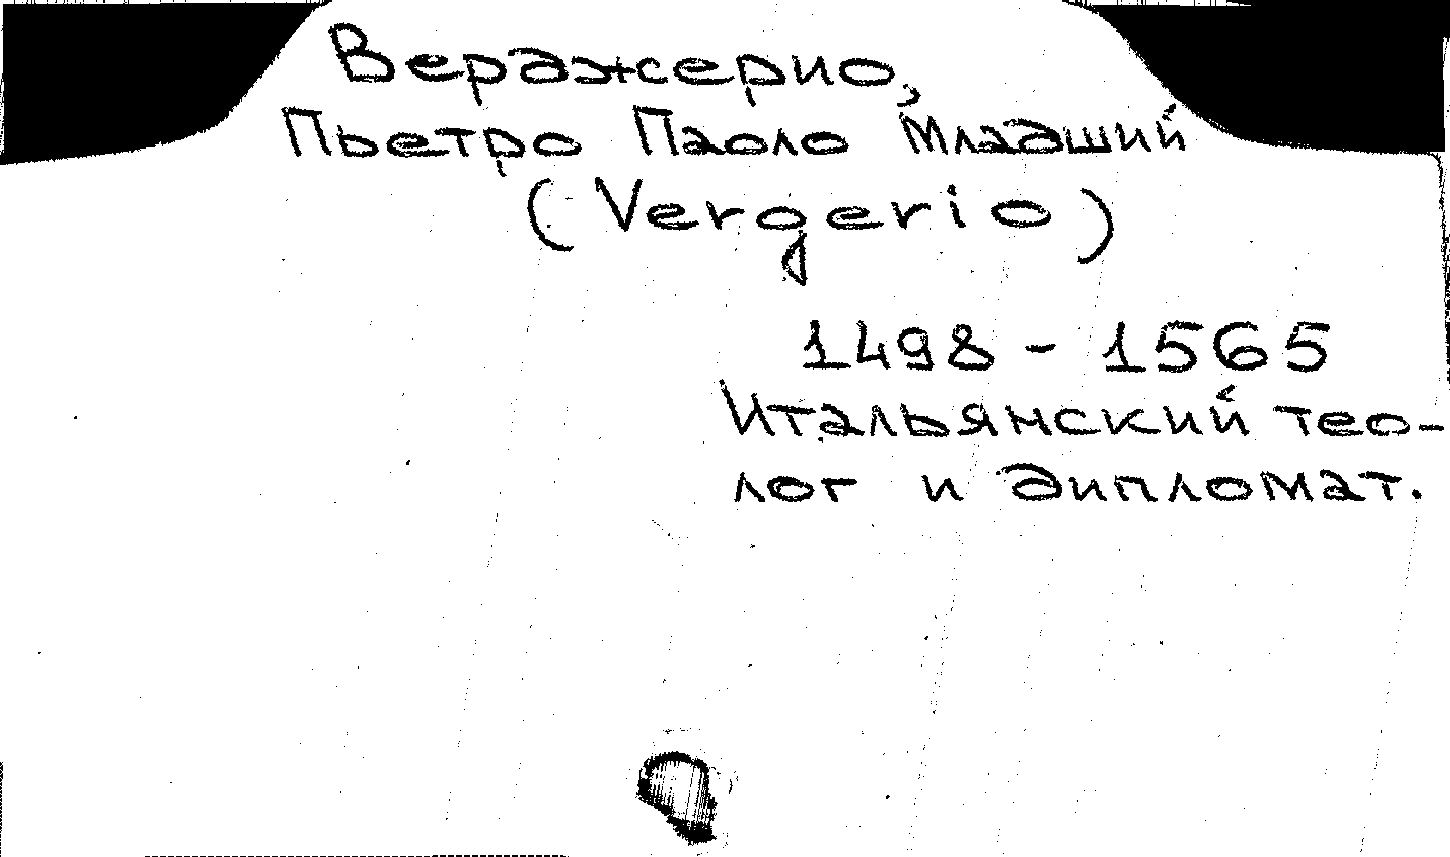 Верджерио,
Пьетро Паоло Младший
(Vergerio)
1498 - 1565
Итальянский тео-
лог и дипломат.